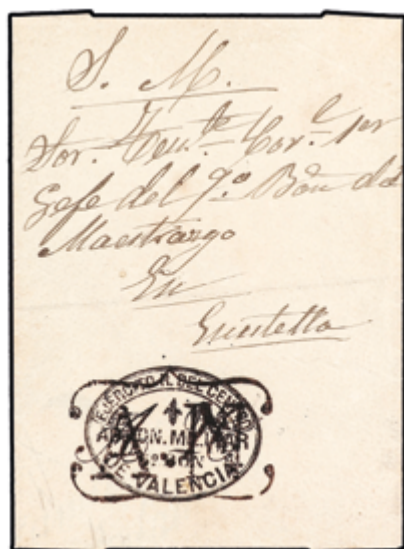 S. M.
Sor. Ten.te Cor.l 1er
Gefe del 7.o Bon del
Maestrazgo
En
EJÉRCITO R. DEL CENTRO
ADMON. MILITAR
DE VALENCIA